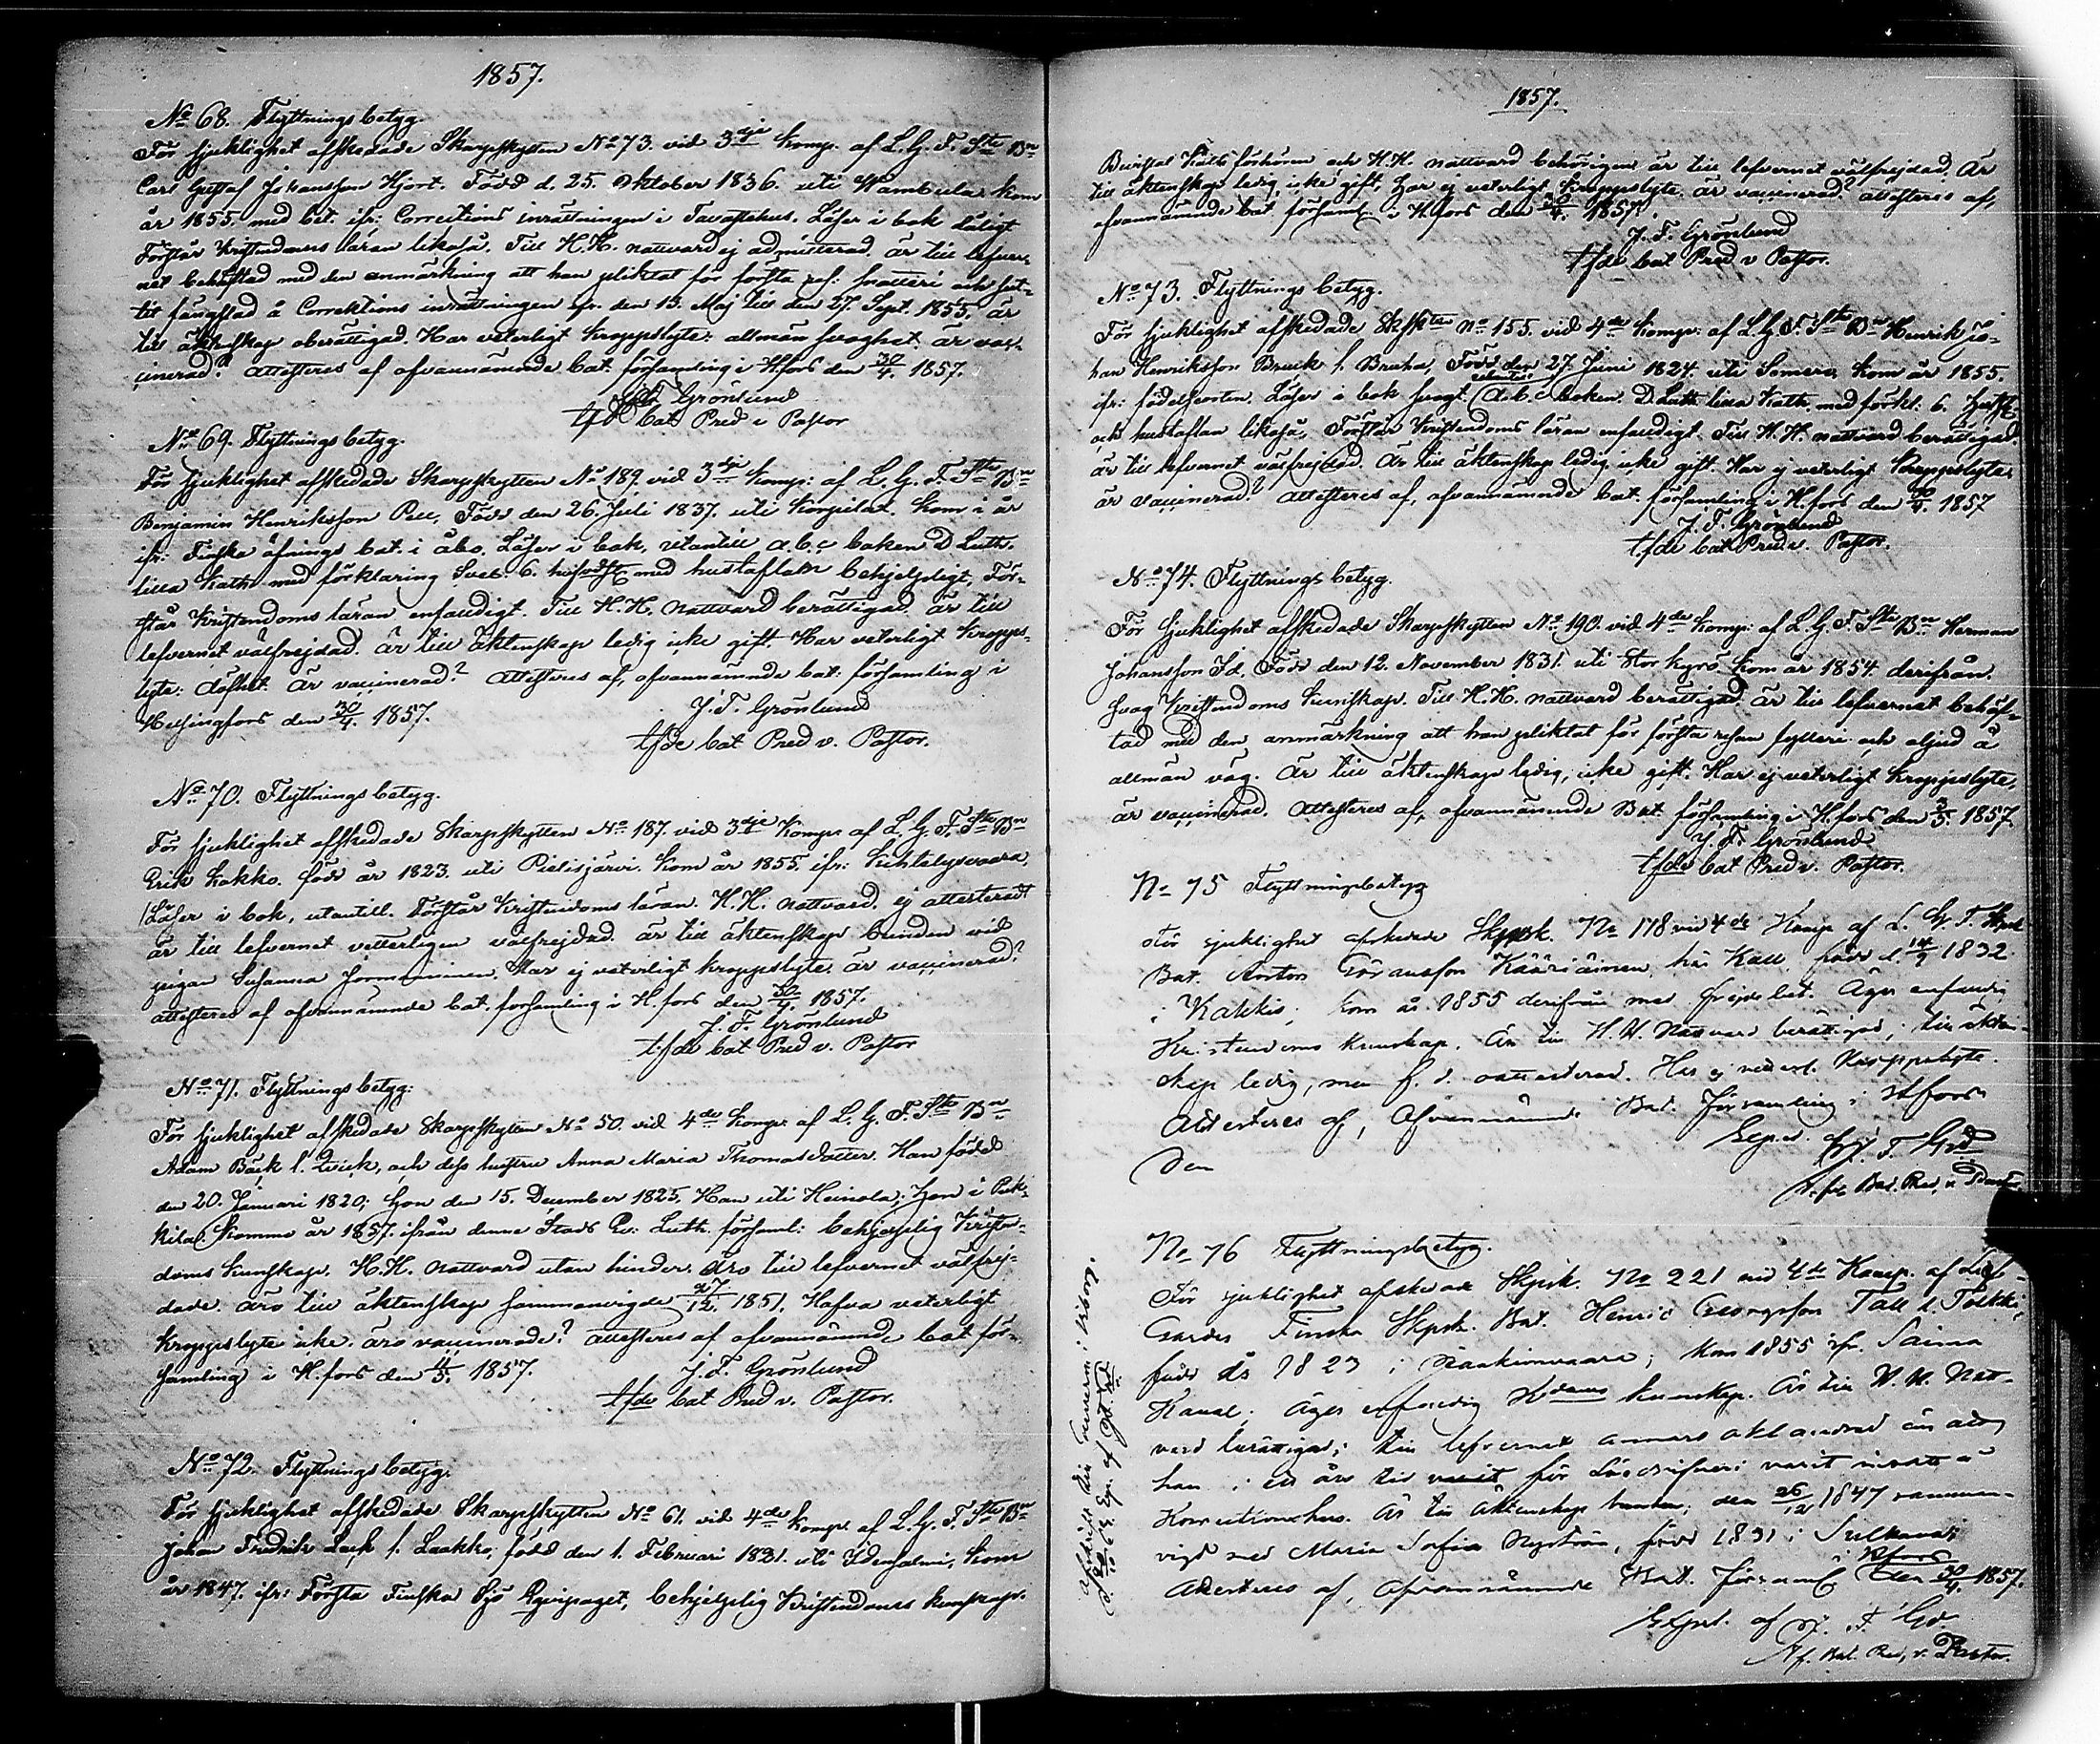 1857.
No 68. Flyttnings betyg.
För sjuklighet afskedade Skarpskytten No 73. vid 3dje Komp. af L. G. F. Ste Bn
Carl Gustaf Johansson Hjort. Född d. 25. Oktober 1836. uti Wambula. kom
år 1855. med bet. ifr: Corrections inrättningen i Tavastehus. Läser i bok dåligt
Förstår Kristendoms läran likaså. Till H. H. nattvard ej admitterad. är till lefver-
net behäftad med den anmärkning att han pliktat för första snatteri och sut-
tit fängslad å Correktions inrättningen ifr. den 13. Maj till den 27. Sept. 1855. är
till äktenskap oberättigad. Har veterligt kroppslyte: allmän svaghet. är vac-
cinerad? Attesteras af ofvannämnde bat. församling i H.fors den 30/4. 1857.
Grönlund
tfde bat Pred v Pastor
No 69. Flyttnings betyg.
För sjuklighet afskedade Skarpskytten No 189. vid 3dje Komp: af L. G. F. Ste Bn
Benjamin Henriksson Född den 26. Juli 1837. uti Korpilat. Kom i år
ifr: Finska öfnings bat. i Åbo. Läser i bok, utantill a.b.c boken D Luth.
lilla Kath. med förklaring Sveb. 6. med hustaflan behjelpligt, För-
står Kristendoms läran enfaldigt. Till H. H. nattvard berättigad. är till
lefvernet välfrejdad. är till äktenskap ledig icke gift. Har veterligt kropps-
lyte: döfhet. är vaccinerad? Attesteras af, ofvannämnde bat: församling i
Helsingfors den 30/4. 1857.
J. F. Grönlund
tfde bat Pred v. Pastor.
No 70. Flyttnings betyg.
För sjuklighet afskedade Skarpskytten No 187. vid 3dje Komp. af L. G. F. Ste Bn
Erik Kokko. född år 1823. uti Pielisjärvi. Kom år 1855. ifr: Kihtelysvaara
Läser i bok, utantill. Förstår Kristendoms läran. H. H. nattvard. ej attesteradt
är till lefvernet vetterligen välfrejdad. är till äktenskap bunden vid
pigan Susanna Jormanainen. Har ej veterligt kroppslyte. är vaccinerad?
attesteras af ofvannämnde bat. församling i H.fors den 30/4. 1857.
J. F. Grönlund
t.fde bat Pred v. Pastor
No 71. Flyttnings betyg:
För sjuklighet afskedade Skarpskytten No 50. vid 4de Komp. af L. G. F. Ste Bn
Adam Bäck l. Quick, och dess hustru Anna Maria Thomasdotter. Han född
den 20. Januari 1820; hon den 15. December 1825, Han uti Heinola; hon i Puk-
kila. Komma år 1857. ifrån denna Stads Ev: Luth. församl: behjelplig Kristen-
doms kunskap. H. H. nattvard utan hinder. äro till lefvernet välfrej-
dade. äro till äktenskap sammanvigde 27/12. 1851. Hafva veterligt
kroppslyte icke. äro vaccinerade? attesteras af ofvannämnde bat. för-
samling i H.fors den 4/5. 1857.
J. F. Grönlund
tfde bat Pred v. Pastor.
No 72. Flyttnings betyg.
För sjuklighet afskedade Skarpskytten No 61. vid 4de Komp. af L. G. F. Ste Bn
Johan Fredrik Lack l. Laakko, född den 1. Februari 1831. uti Idensalmi, kom
år 1847. ifr: Första Finska Sjö Eqvipaget, behjelplig Kristendoms kunskap.
1857.
förhören och H. H. nattvard behörigen är till lefvernet välfrejdad. Är
till äktenskap ledig, icke gift, har ej veterligt kroppslyte. är vaccinerad? attesteras af,
ofvannämnde bat. församl. i H.fors den 30/4. 1857.
J. F. Grönlund
tfde bat Pred v Pastor.
No 73. Flyttnings betyg.
För sjuklighet afskedade Skskten No 155. vid 4de Komp: af L. G. F. Ste Bn Henrik Jo-
han Henriksson Bruck l. Bruha, Född den 27. Juni 1824. uti Somero, kom år 1855.
ifr: födelseorten. Läser i bok svagt. utantill a.b.c boken. D Luth. lilla Kath. med förkl. 6.
och hustaflan likaså, Förstår Kristendoms läran enfaldigt. Till H. H. nattvard berättigad.
är till lefvernet välfrejdad. är till äktenskap ledig icke gift. Har ej veterligt kroppslyte.
är vaccinerad? Attesteras af, ofvannämnde bat. församling i H.fors den 30/4. 1857
J. F. Grönlund
t.fde bat Pred v. Pastor.
No 74. Flyttnings betyg.
För sjuklighet afskedade Skarpskytten No 190. vid 4de Komp: af L. G. F. Ste Bn Herman
Johansson Id. Född den 12. November 1831. uti Storkyro. kom år 1854. derifrån.
svag Kristendoms kunskap. Till H. H. nattvard berättigad. är till lefvernet behäf-
tad med den anmärkning att han pliktat för första resan fylleri och oljud å
allmän väg. är till äktenskap ledig, icke gift. Har ej veterligt kroppslyte.
är vaccinerad. Attesteras af, ofvannämnde Bat församling i H.fors den 3/5. 1857.
J. F. Grönlund
t.fde bat Pred v. Pastor.
No 75 Flyttningsbetyg
För sjuklighet afskedade Skpsk. No 178 vid 4de Komp af L. G. F. Skpsk
Bat. Anton Göransson Kääriäinen, här Kall född d. 14/9 1832.
i Kakkis, kom år 1855 derifrån med frejde bet. Äger enfaldig
Kristendoms kunskap. Är till H. H. Nattvard berättigad; till äkten-
skap ledig, men f. d. Har ej veterl. Kroppslyte.
Attesteras af, Ofvannämnde Bat. Församling i Hfors
Den
Exped. af J. F. Grd
T. f. Bat. Pred. v. Pastor
No 76 Flyttningsbetyg.
För sjuklighet afskedade Skpsk. No 221 vid 4de Komp. af Lif-
Gardes Finska Skpsk. Bat. Henric Georgsson Tall l. Tolkki
född år 1823 i Kaakinvaara; kom 1855 ifr. Saima
Kanal; äger enfaldig Kdoms kunskap. Är till H. H. Natt-
vard berättigad; till lefvernet annars oklandrad än att
han i ett års tid för Lösdrifveri varit insatt å
Korrektionshus. Är till Äktenskap bunden, den 26/12 1847 samman-
vigd med Maria Sofia Nyström, född 1831 i Sulkava;
Attesteras af, Ofvannämnde Bat. Församl. Hfors den 30/4. 1857.
Expd. af J. F. Gr.
T.f. Bat. Pred. v. Pastor.